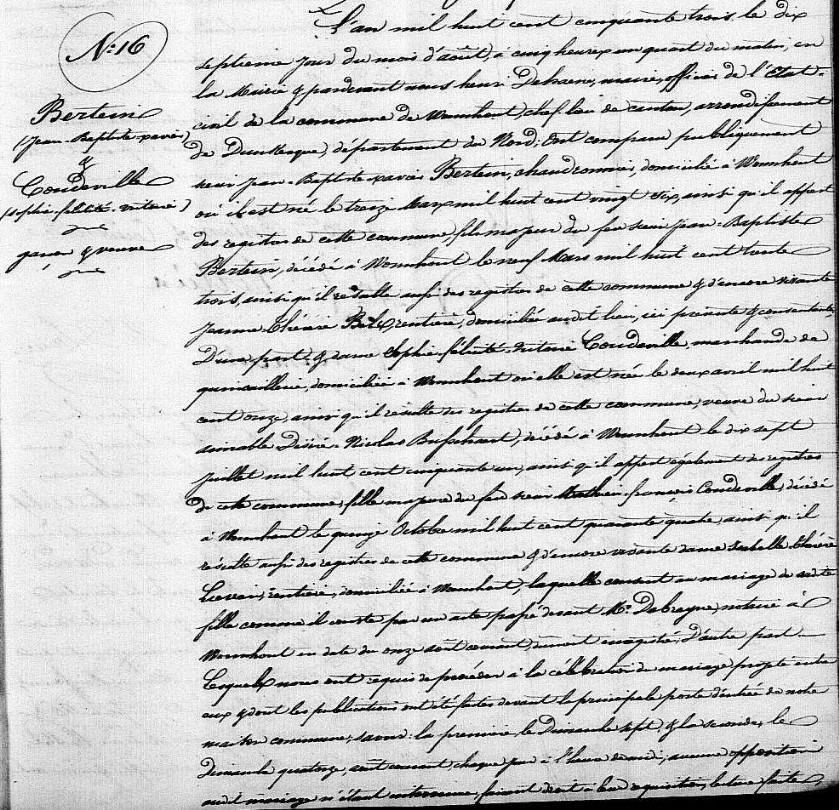 N.° 16
Bertein
(Jean-Baptiste xavier)
&
Coudeville
(sophie félicité victoire)
garçon & veuve
L'an mil huit cent cinquante trois le dix
septième jour du mois d'août, à cinq heures un quart du matin, en
la Mairie & pardevant nous henri Dehaene, maire, officier de l'Etat-
civil de la commune de Wormhout, chef-lieu de canton, arrondissement
de Dunkerque, département du Nord. Ont comparu publiquement
sieur Jean-Baptiste xavier Bertein, chaudronnier, domicilié à Wormhout
où il est né le treize Mars mil huit cent vingt six, ainsi qu'il appert
des registres de cette commune, fils majeur du feu sieur Jean-Baptiste
Bertein, décédé à Wormhout le neuf Mars mil huit cent trente
trois, ainsi qu'il résulte aussi des registres de cette commune & d'encore vivante
Jeanne thérèse rentière, domiciliée audit lieu, ici présente & consentante,
D'une part, & dame Sophie félicité victoire Coudeville, marchande de
quincaillerie, domiciliée à Wormhout où elle est née le deux avril mil huit
cent onze, ainsi qu'il résulte des registres de cette commune, veuve du sieur
aimable Désiré Nicolas décédé à Wormhout le dix sept
juillet mil huit cent cinquante un, ainsi qu'il appert également des registres
de cette commune, fille majeure de feu sieur Mathieu françois Coudeville, décédé
à Wormhout le quinze Octobre mil huit cent quarante quatre, ainsi qu'il
résulte aussi des registres de cette commune & d'encore vivante dame Isabelle thérèse
rentière, domiciliée à Wormhout, laquelle consent au mariage de sadite
fille comme il conste par un acte passé devant M.e notaire à
Wormhout en date du onze août courant, dûment enregistré, D'autre part
Lesquels nous ont requis de procéder à la célébration du mariage projeté entre
eux & dont les publications ont été faites devant la principale porte d'entrée de notre
maison commune, savoir: la première, le Dimanche sept & la seconde, le
Dimanche quatorze, août courant, chaque jour à l'heure de midi; aucune opposition
audit mariage n'étant intervenue, faisant droit à leur réquisition, lecture faite